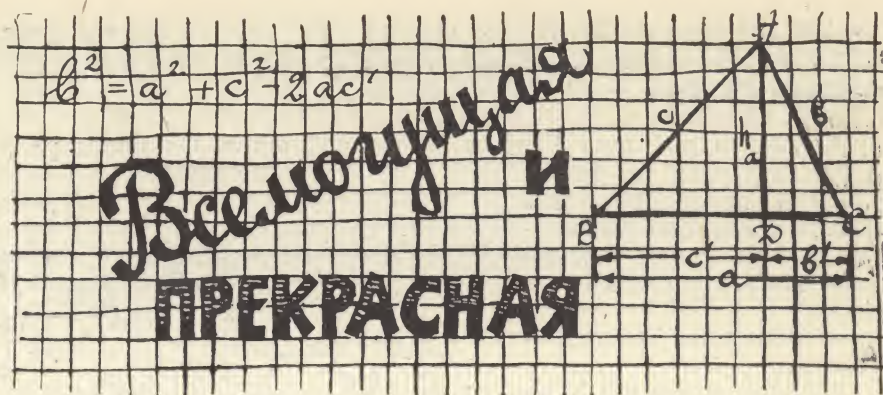 b² = a² + c² - 2ac'
Всемогущая
и
ПРЕКРАСНАЯ
A
c
b
hₐ
B
D
C
c'
b'
a